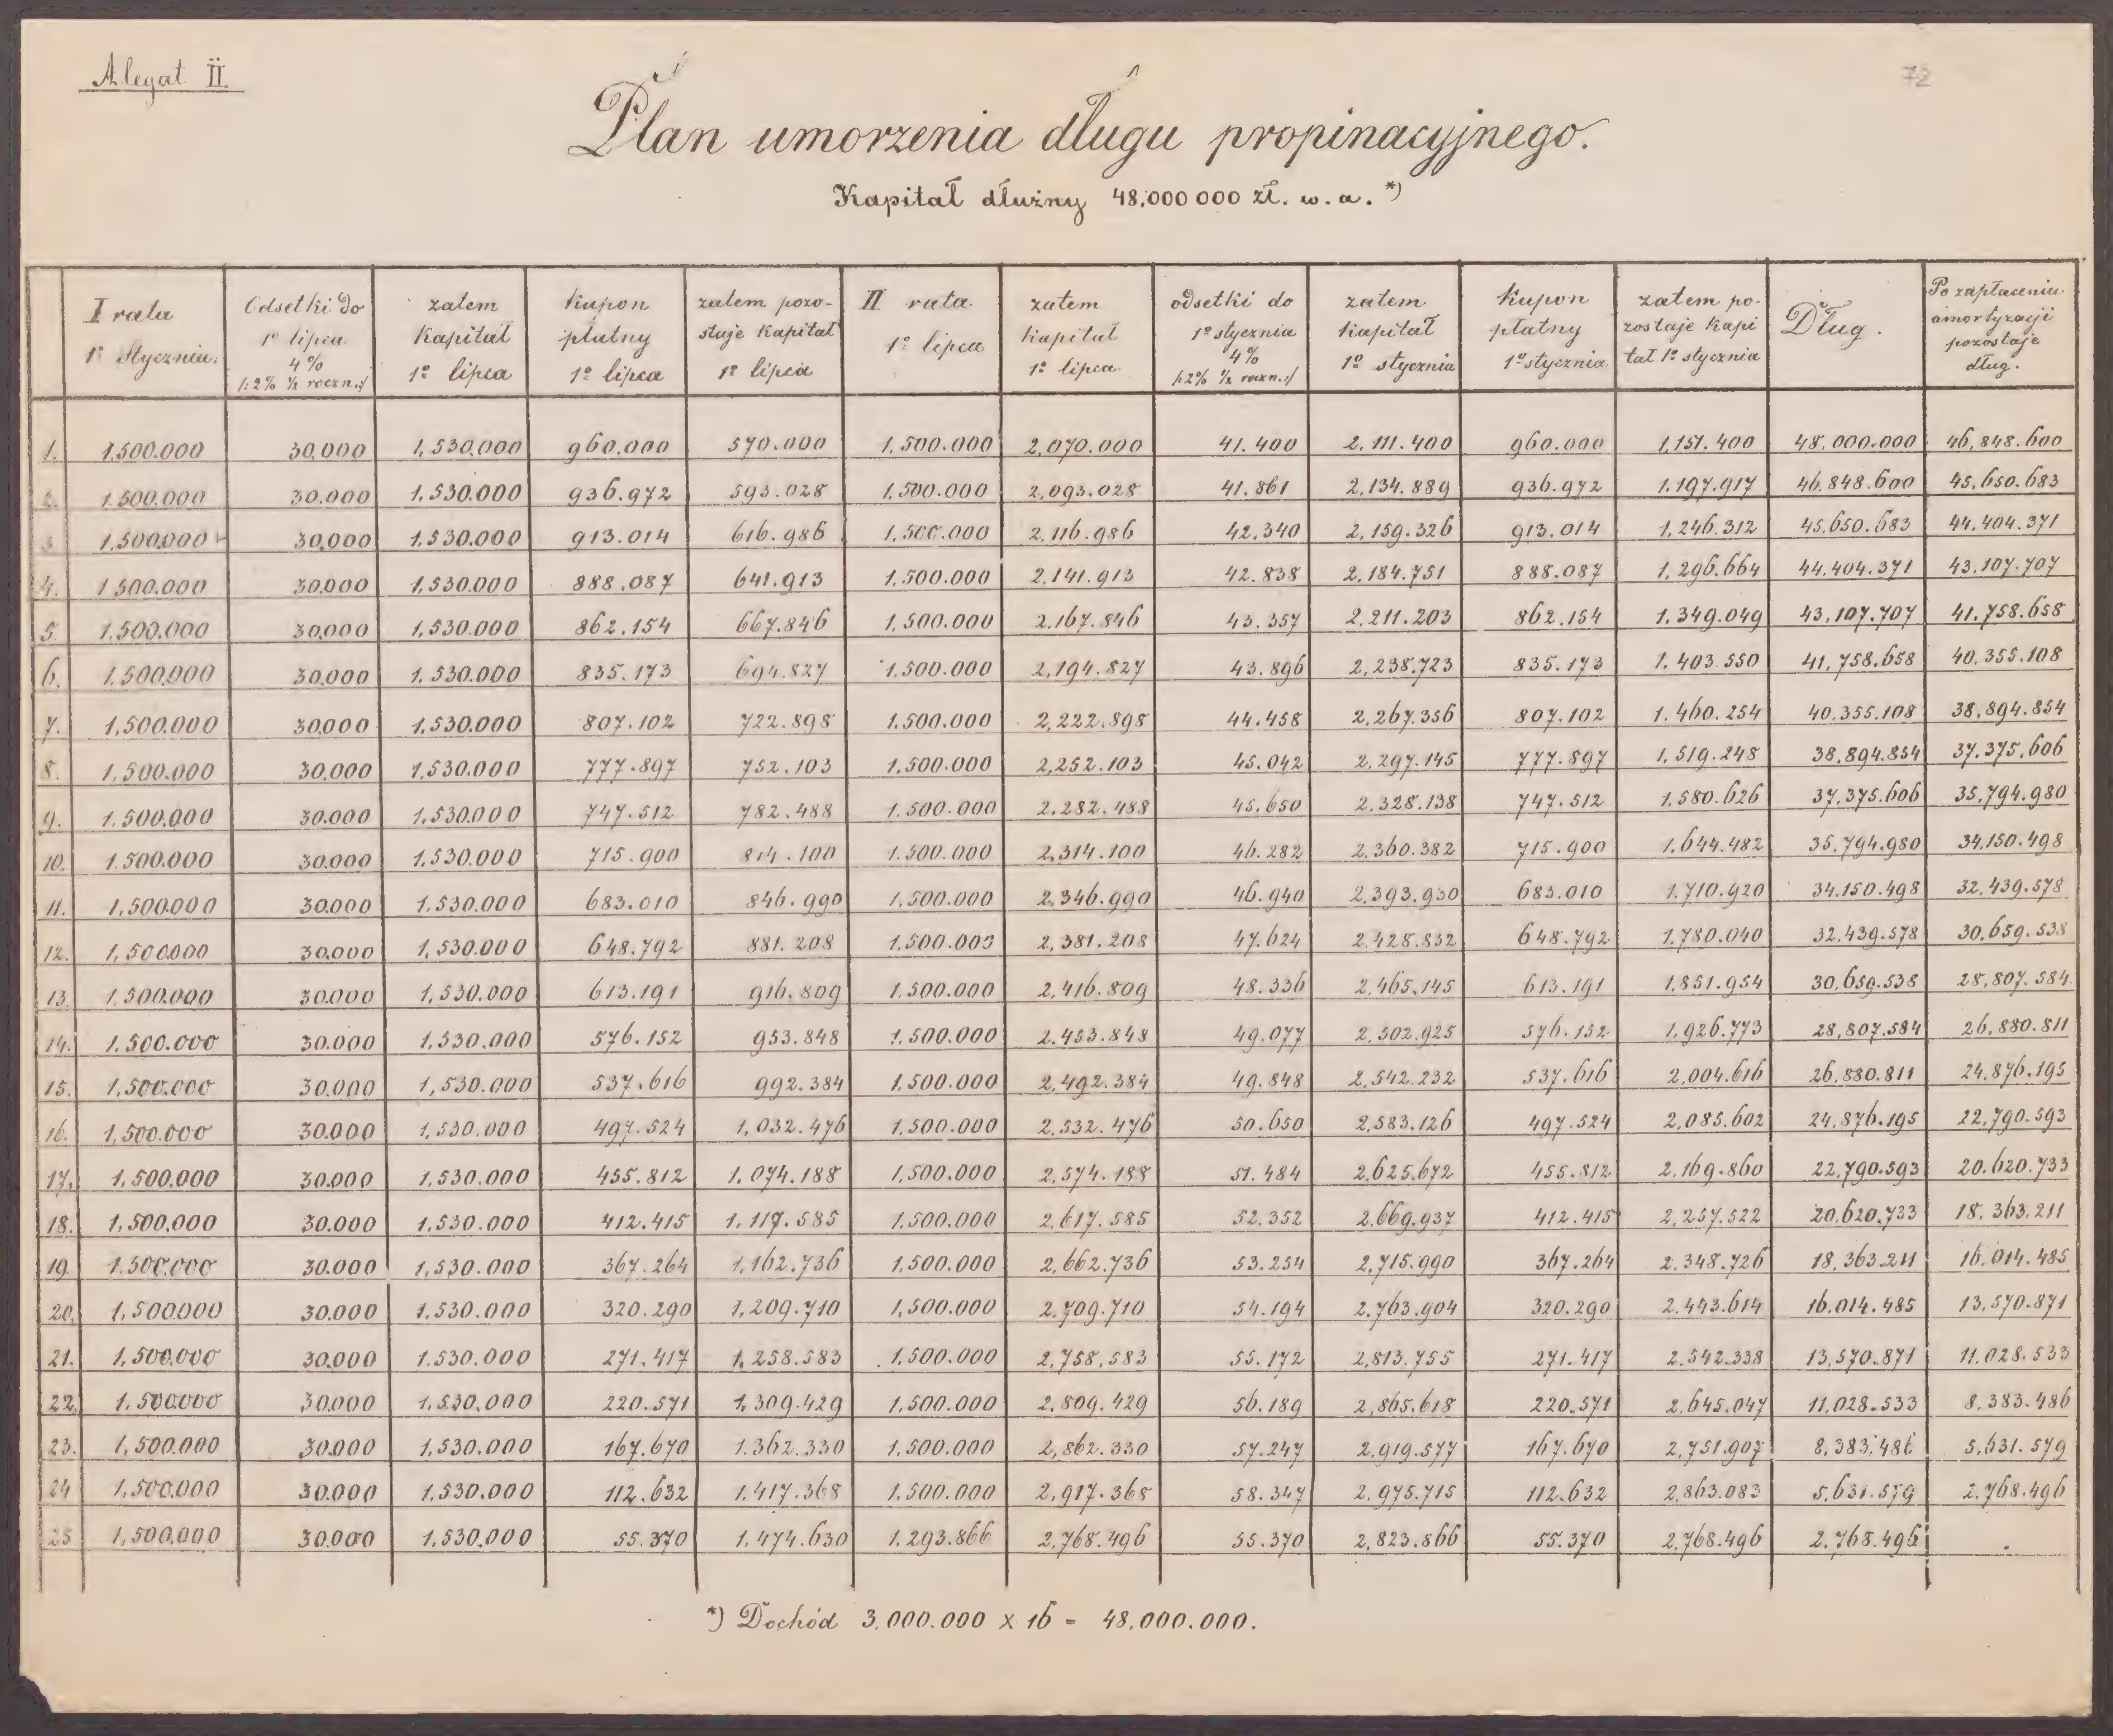 Alegat II.
72
Plan umorzenia długu propinacyjnego.
Kapitał dłużny 48.000 000 zł. w. a. *)
I rata 1º Stycznia. | Odsetki do 1º lipca 4% /:2% ½ roczn.:/ | zatem Kapitał 1º lipca | Kupon płatny 1º lipca | zatem pozostaje Kapitał 1º lipca | II rata 1º lipca | zatem Kapitał 1º lipca | odsetki do 1º stycznia 4% /:2% ½ roczn.:/ | zatem Kapitał 1º stycznia | Kupon płatny 1º stycznia | zatem pozostaje Kapitał 1º stycznia | Dług. | Po zapłaceniu amortyzacji pozostaje dług.
1. 1.500.000 30.000 1,530.000 960.000 570.000 1,500.000 2,070.000 41.400 2,111.400 960.000 1,151.400 48,000.000 46,848.600
2. 1.500.000 30.000 1,530.000 936.972 593.028 1,500.000 2,093.028 41.861 2,134.889 936.972 1.197.917 46.848.600 45,650.683
3. 1,500.000 30,000 1.530.000 913.014 616.986 1,500.000 2,116.986 42.340 2,159.326 913.014 1,246.312 45,650.683 44,404.371
4. 1.500.000 30.000 1,530.000 888.087 641.913 1,500.000 2,141.913 42.838 2,184.751 888.087 1,296.664 44,404.371 43,107.707
5. 1,500.000 30,000 1,530.000 862.154 667.846 1,500.000 2,167.846 43.357 2,211.203 862.154 1,349.049 43,107.707 41,758.658
6. 1,500.000 30.000 1,530.000 835.173 694.827 1.500.000 2,194.827 43.896 2,238.723 835.173 1,403.550 41,758.658 40,355.108
7. 1,500.000 30.000 1,530.000 807.102 722.898 1.500.000 2,222.898 44.458 2,267.356 807.102 1,460.254 40,355.108 38,894.854
8. 1,500.000 30,000 1,530.000 777.897 752.103 1,500.000 2,252.103 45.042 2,297.145 777.897 1,519.248 38,894.854 37,375,606
9. 1.500.000 30.000 1,530.000 747.512 782.488 1.500.000 2,282.488 45.650 2.328.138 747.512 1,580.626 37,375.606 35,794.980
10. 1.500.000 30.000 1,530.000 715.900 814.100 1.500.000 2,314.100 46.282 2,360.382 715.900 1,644.482 35,794.980 34,150.498
11. 1,500.000 30.000 1.530.000 683.010 846.990 1,500.000 2,346.990 46.940 2,393.930 683.010 1.710.920 34.150.498 32.439.578
12. 1,500.000 30.000 1,530.000 648.792 881.208 1.500.000 2,381.208 47.624 2.428.832 648.792 1.780.040 32.439.578 30,659.538
13. 1.500.000 30.000 1,530.000 613.191 916.809 1,500.000 2,416.809 48.336 2.465.145 613.191 1,851.954 30,659.538 28,807.584
14. 1.500.000 30.000 1,530.000 576.152 953.848 1,500.000 2.453.848 49.077 2,502.925 576.152 1,926.773 28,807.584 26,880.811
15. 1,500.000 30.000 1,530.000 537.616 992.384 1,500.000 2,492.384 49.848 2,542.232 537.616 2,004.616 26,880.811 24,876.195
16. 1,500.000 30.000 1,530.000 497.524 1,032.476 1,500.000 2,532.476 50.650 2,583.126 497.524 2,085.602 24,876.195 22,790.593
17. 1,500.000 30.000 1,530.000 455.812 1.074.188 1,500.000 2,574.188 51.484 2.625.672 455.812 2.169.860 22,790.593 20.620.733
18. 1,500.000 30.000 1,530.000 412.415 1,117.585 1,500.000 2,617.585 52.352 2.669.937 412.415 2,257.522 20,620.733 18,363.211
19. 1.500.000 30.000 1,530.000 367.264 1,162.736 1,500.000 2,662.736 53.254 2,715.990 367.264 2.348.726 18,363.211 16.014.485
20. 1,500.000 30.000 1.530.000 320.290 1,209.710 1,500.000 2,709.710 54.194 2,763.904 320.290 2.443.614 16.014.485 13,570.871
21. 1,500.000 30,000 1.530.000 271.417 1,258.583 1,500.000 2,758,583 55.172 2,813.755 271.417 2.542.338 13,570.871 11.028.533
22. 1.500.000 30.000 1,530,000 220.571 1,309.429 1,500.000 2.809.429 56.189 2,865.618 220.571 2.645.047 11,028.533 8,383.486
23. 1,500.000 30.000 1,530.000 167.670 1.362.330 1,500.000 2,862.330 57.247 2.919.577 167.670 2,751.907 8,383.486 5,631.579
24 1,500.000 30.000 1,530.000 112.632 1.417.368 1,500.000 2,917.368 58.347 2.975.715 112.632 2,863.083 5,631.579 2.768.496
25 1,500.000 30.000 1,530.000 55.370 1.474.630 1.293.866 2,768.496 55.370 2,823.866 55.370 2,768.496 2.768.496 .
*) Dochód 3.000.000 x 16 = 48.000.000.